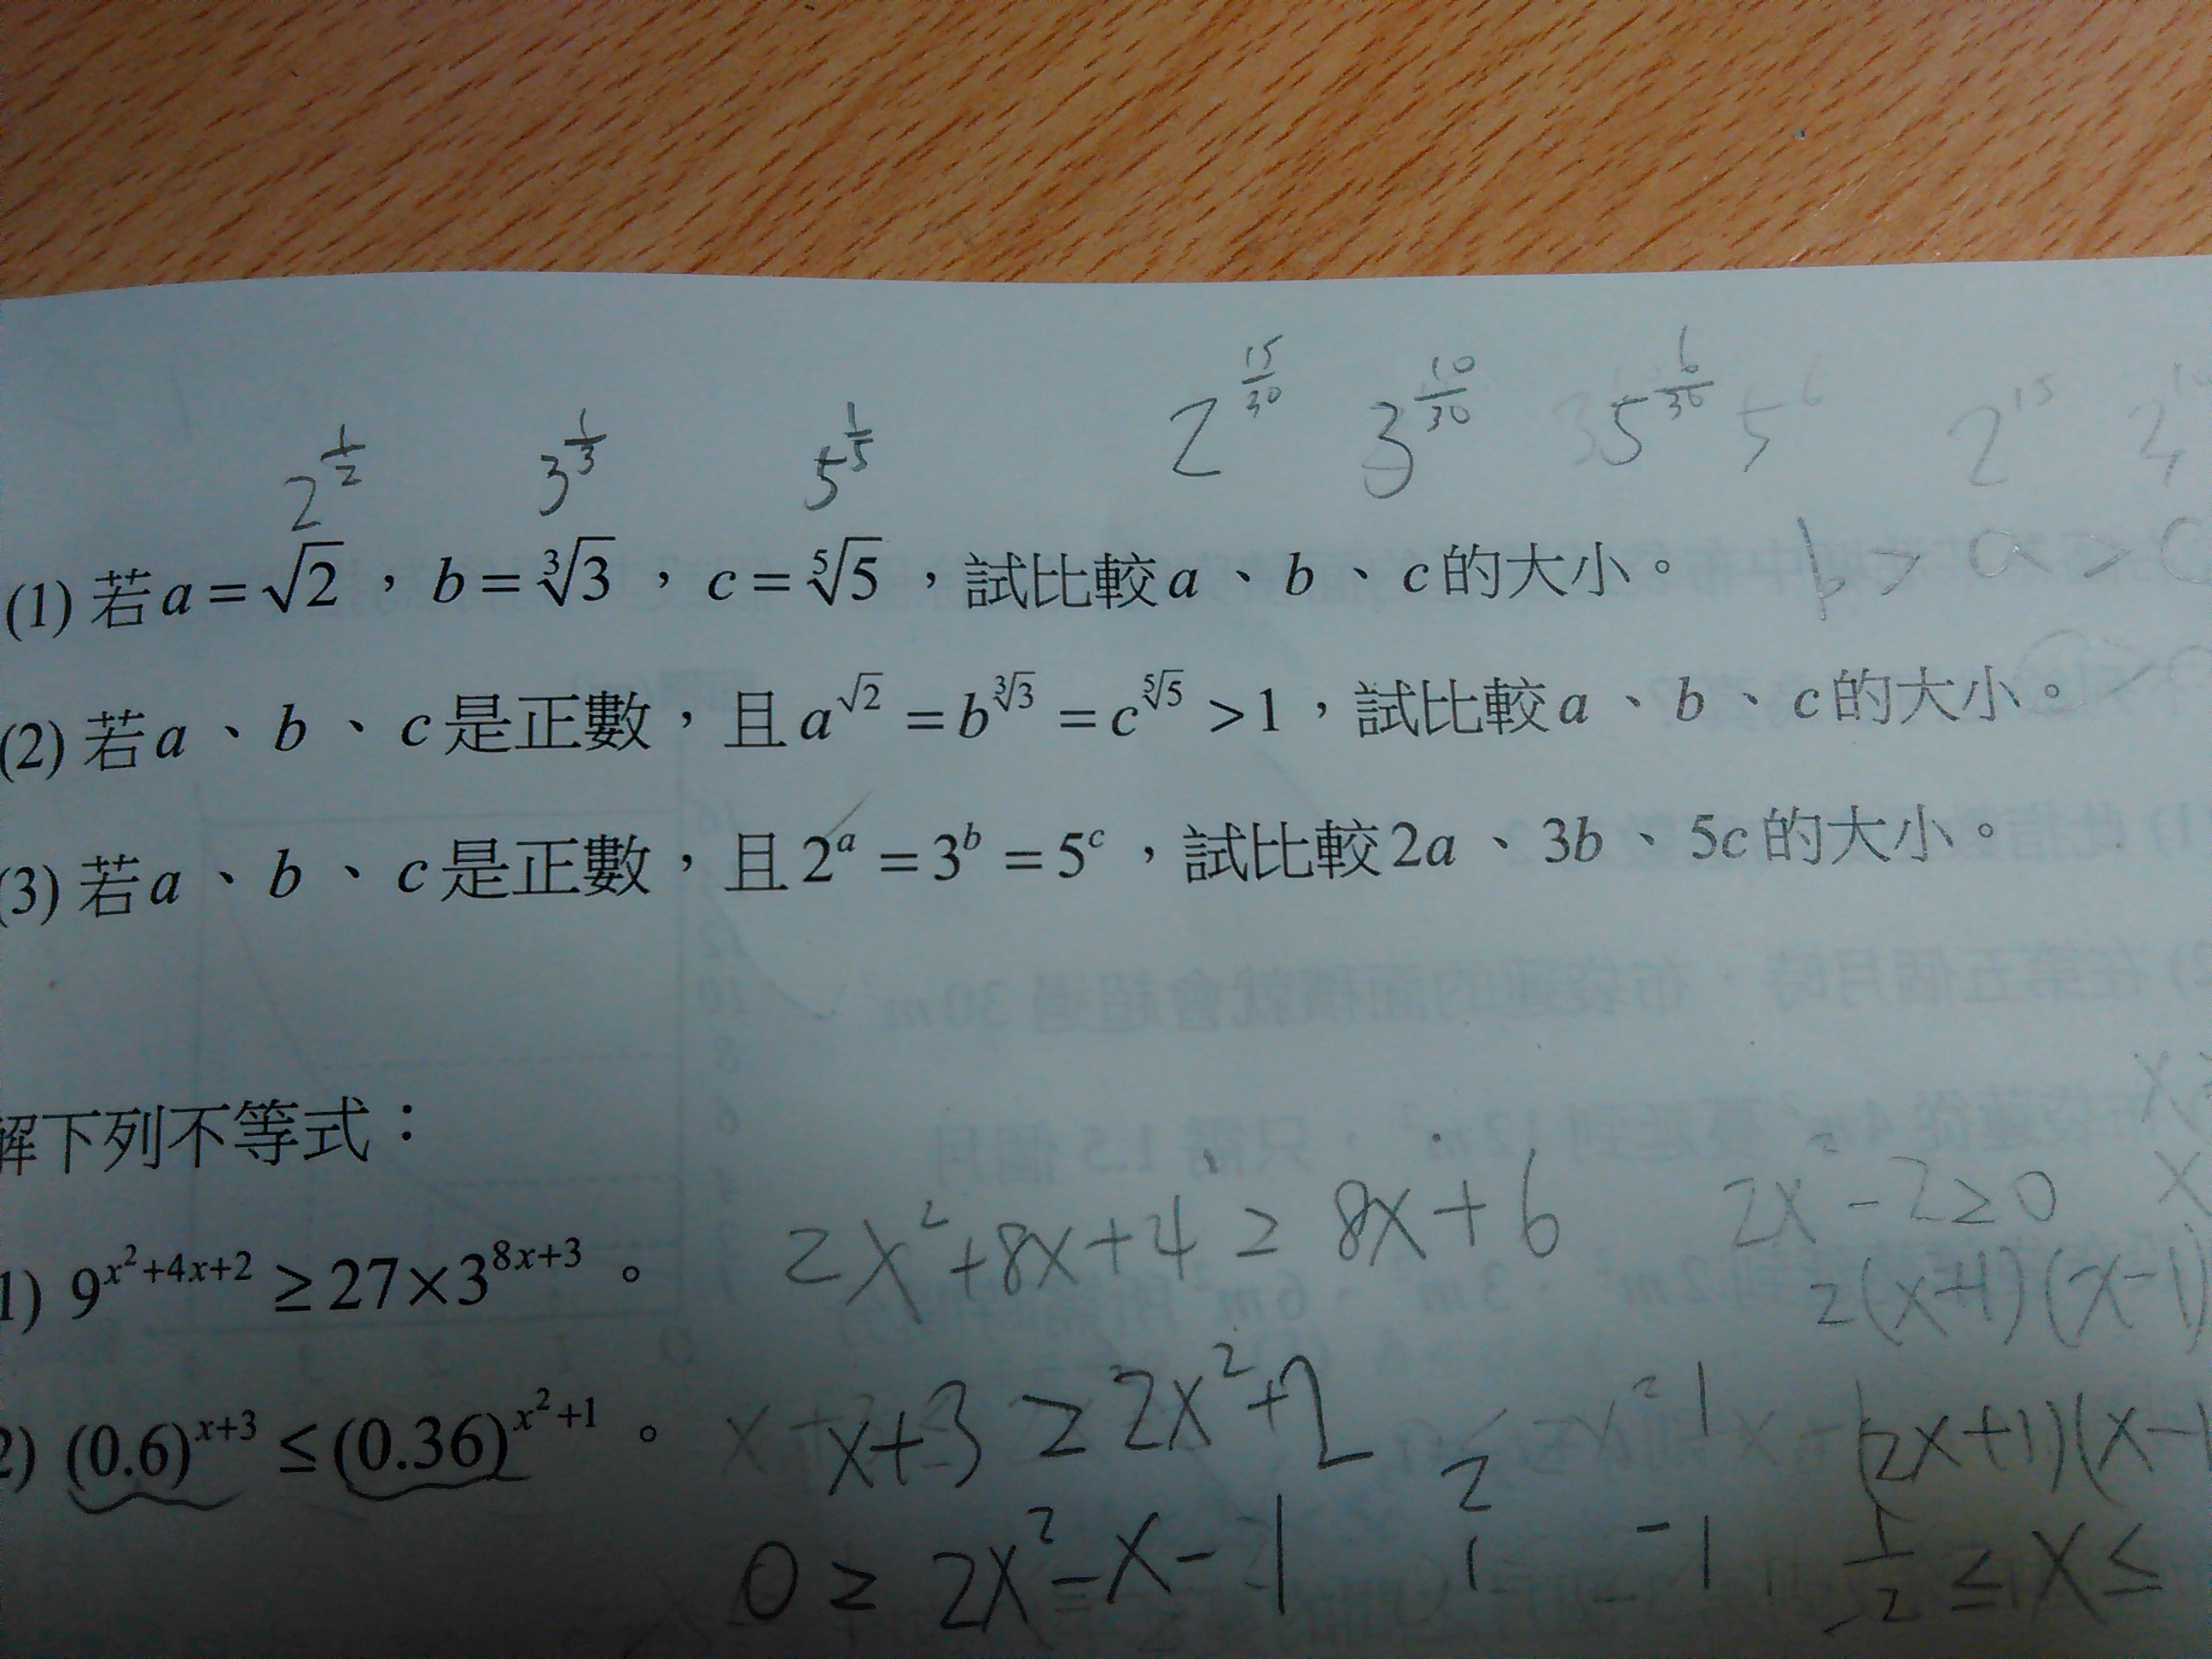 2^{15/30} 3^{10/30} 5^{6/30} 5^6 2^{15}
2^{1/2} 3^{1/3} 5^{1/5}
(1) 若a=√2，b=∛3，c=⁵√5，試比較a、b、c的大小。 b > a > c
(2) 若a、b、c是正數，且a^{√2}=b^{∛3}=c^{⁵√5}>1，試比較a、b、c的大小。
(3) 若a、b、c是正數，且2^a=3^b=5^c，試比較2a、3b、5c的大小。
解下列不等式：
1) 9^{x²+4x+2}≥27×3^{8x+3}。 2x²+8x+4 ≥ 8x+6 2x²-2≥0
2(x+1)(x-1)
2) (0.6)^{x+3}≤(0.36)^{x²+1}。 x+3 ≥ 2x²+2 2 1 (2x+1)(x-1
0 ≥ 2x²-x-1 1 -1 -1/2 ≤ x ≤